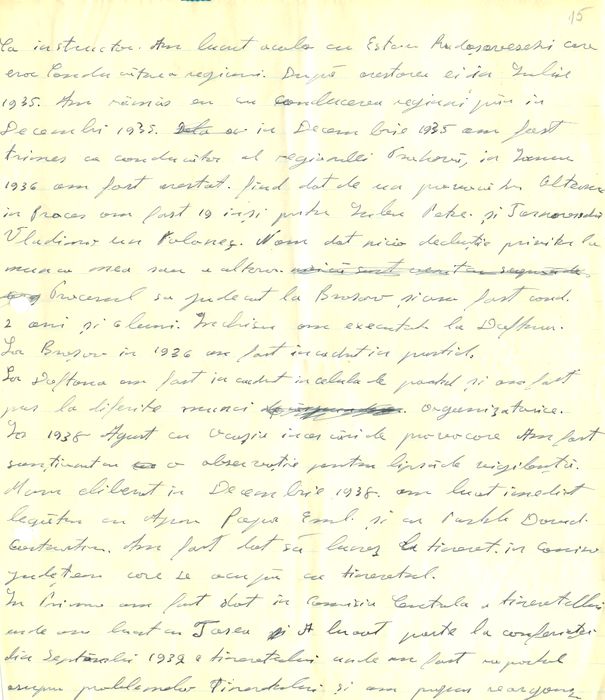 15
Ca instructor. Am lucrat acolo cu Estera care
era conducătoarea regiunii. După arestarea ei în Iulie
1935. Am rămas eu cu conducerea regiunii pîn in
Decembri 1935. in Decembrie 1935 am fost
trimes ca conducător al regionalei Prahova, in
1936 am fost arestat. fiind dat de un provocator
in Proces am fost 19 inși printre Petre și
Vladimir un Polonez. Nam dat nicio declarație privitor la
munca mea sau a altora.
Procesul sa judecat la Brașov și am fost cond.
2 ani și 6 luni. Inchisoarea am executat la Doftana.
La Brașov in 1936 am fost incadrat in partid.
La Doftana am fost incadrat in celula de partid și am fost
pus la diferite munci organizatorice.
In 1938 August cu ocazia incercării de provocare Am fost
sancționat cu o observație pentru lipsă de vigilență.
Mam eliberat in Decembrie 1938. am luat imediat
legătura cu Popa Emil și cu David
Constantin. Am fost dat să lucrez la tineret. in comisia
județean care se ocupa cu tineretul.
In Primo am fost dat in Comisia Centrala a tineretului
unde am lucrat cu și A luat parte la conferința
din Septembrie 1939 a tineretului unde am fost raportul
asupra problemelor Tineretului și am propus